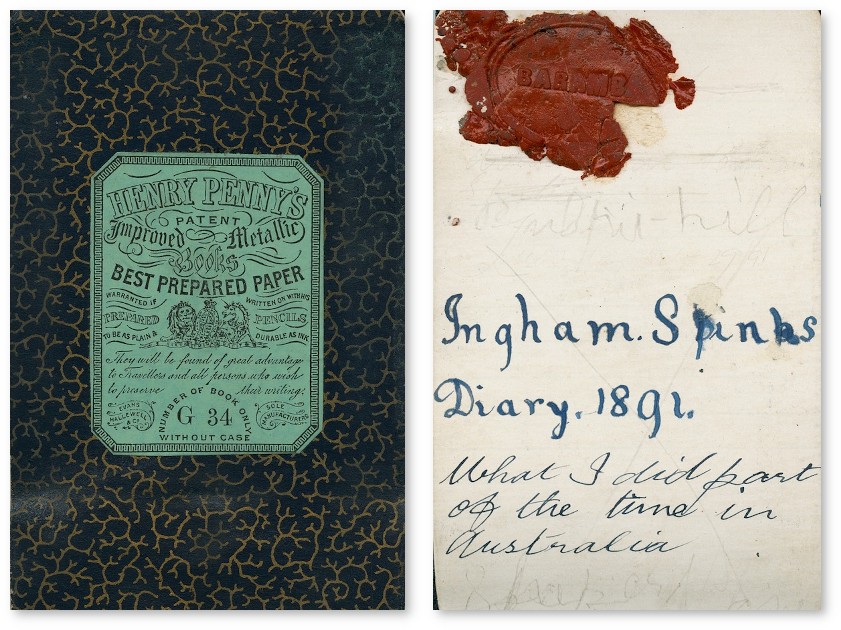 HENRY PENNY'S
PATENT
Improved Metallic
Books
BEST PREPARED PAPER
WARRANTED IF WRITTEN ON WITH HIS
PREPARED PENCILS
TO BE AS PLAIN & DURABLE AS INK
They will be found of great advantage
to Travellers and all persons who wish
to preserve their writing:
EVANS
HALLEWELL
& Co
NUMBER OF BOOK ONLY
G 34
WITHOUT CASE
SOLE
MANUFACTURERS
Ingham. Spinks
Diary. 1891.
What I did part
of the time in
Australia